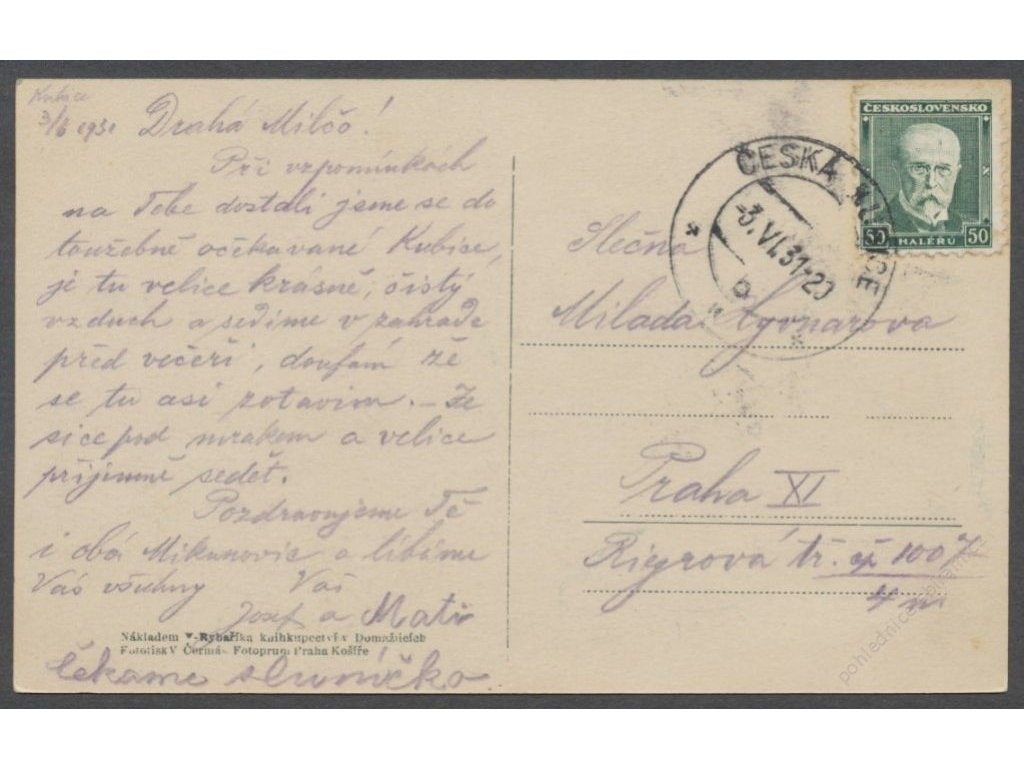 Kubice
3/6 1931 Drahá Milčo!
Při vzpomínkách
na Tebe dostali jsme se do
toužebně očekávané Kubice,
je tu velice krásně, čistý
vzduch a sedíme v zahradě
před večeří, doufám že
se tu asi zotavím. – Je
sice pod mrakem a velice
příjemně sedět.
Pozdravujeme Tě
i obá Mikanovic a líbáme
Vás všechny Vaši
Josef a Mati
Nákladem V. Rybaříka knihkupectví v Domažlicích
Fototisk V Čermák Fotoprum Praha Košíře
čekáme sluníčko.
ČESKOSLOVENSKO
50 50
HALÉŘŮ
ČESKÁ KUBICE
-3.VI.31-20
Slečna
Milada
Praha XI
Riegrová tř. čp 1007
pohlednice